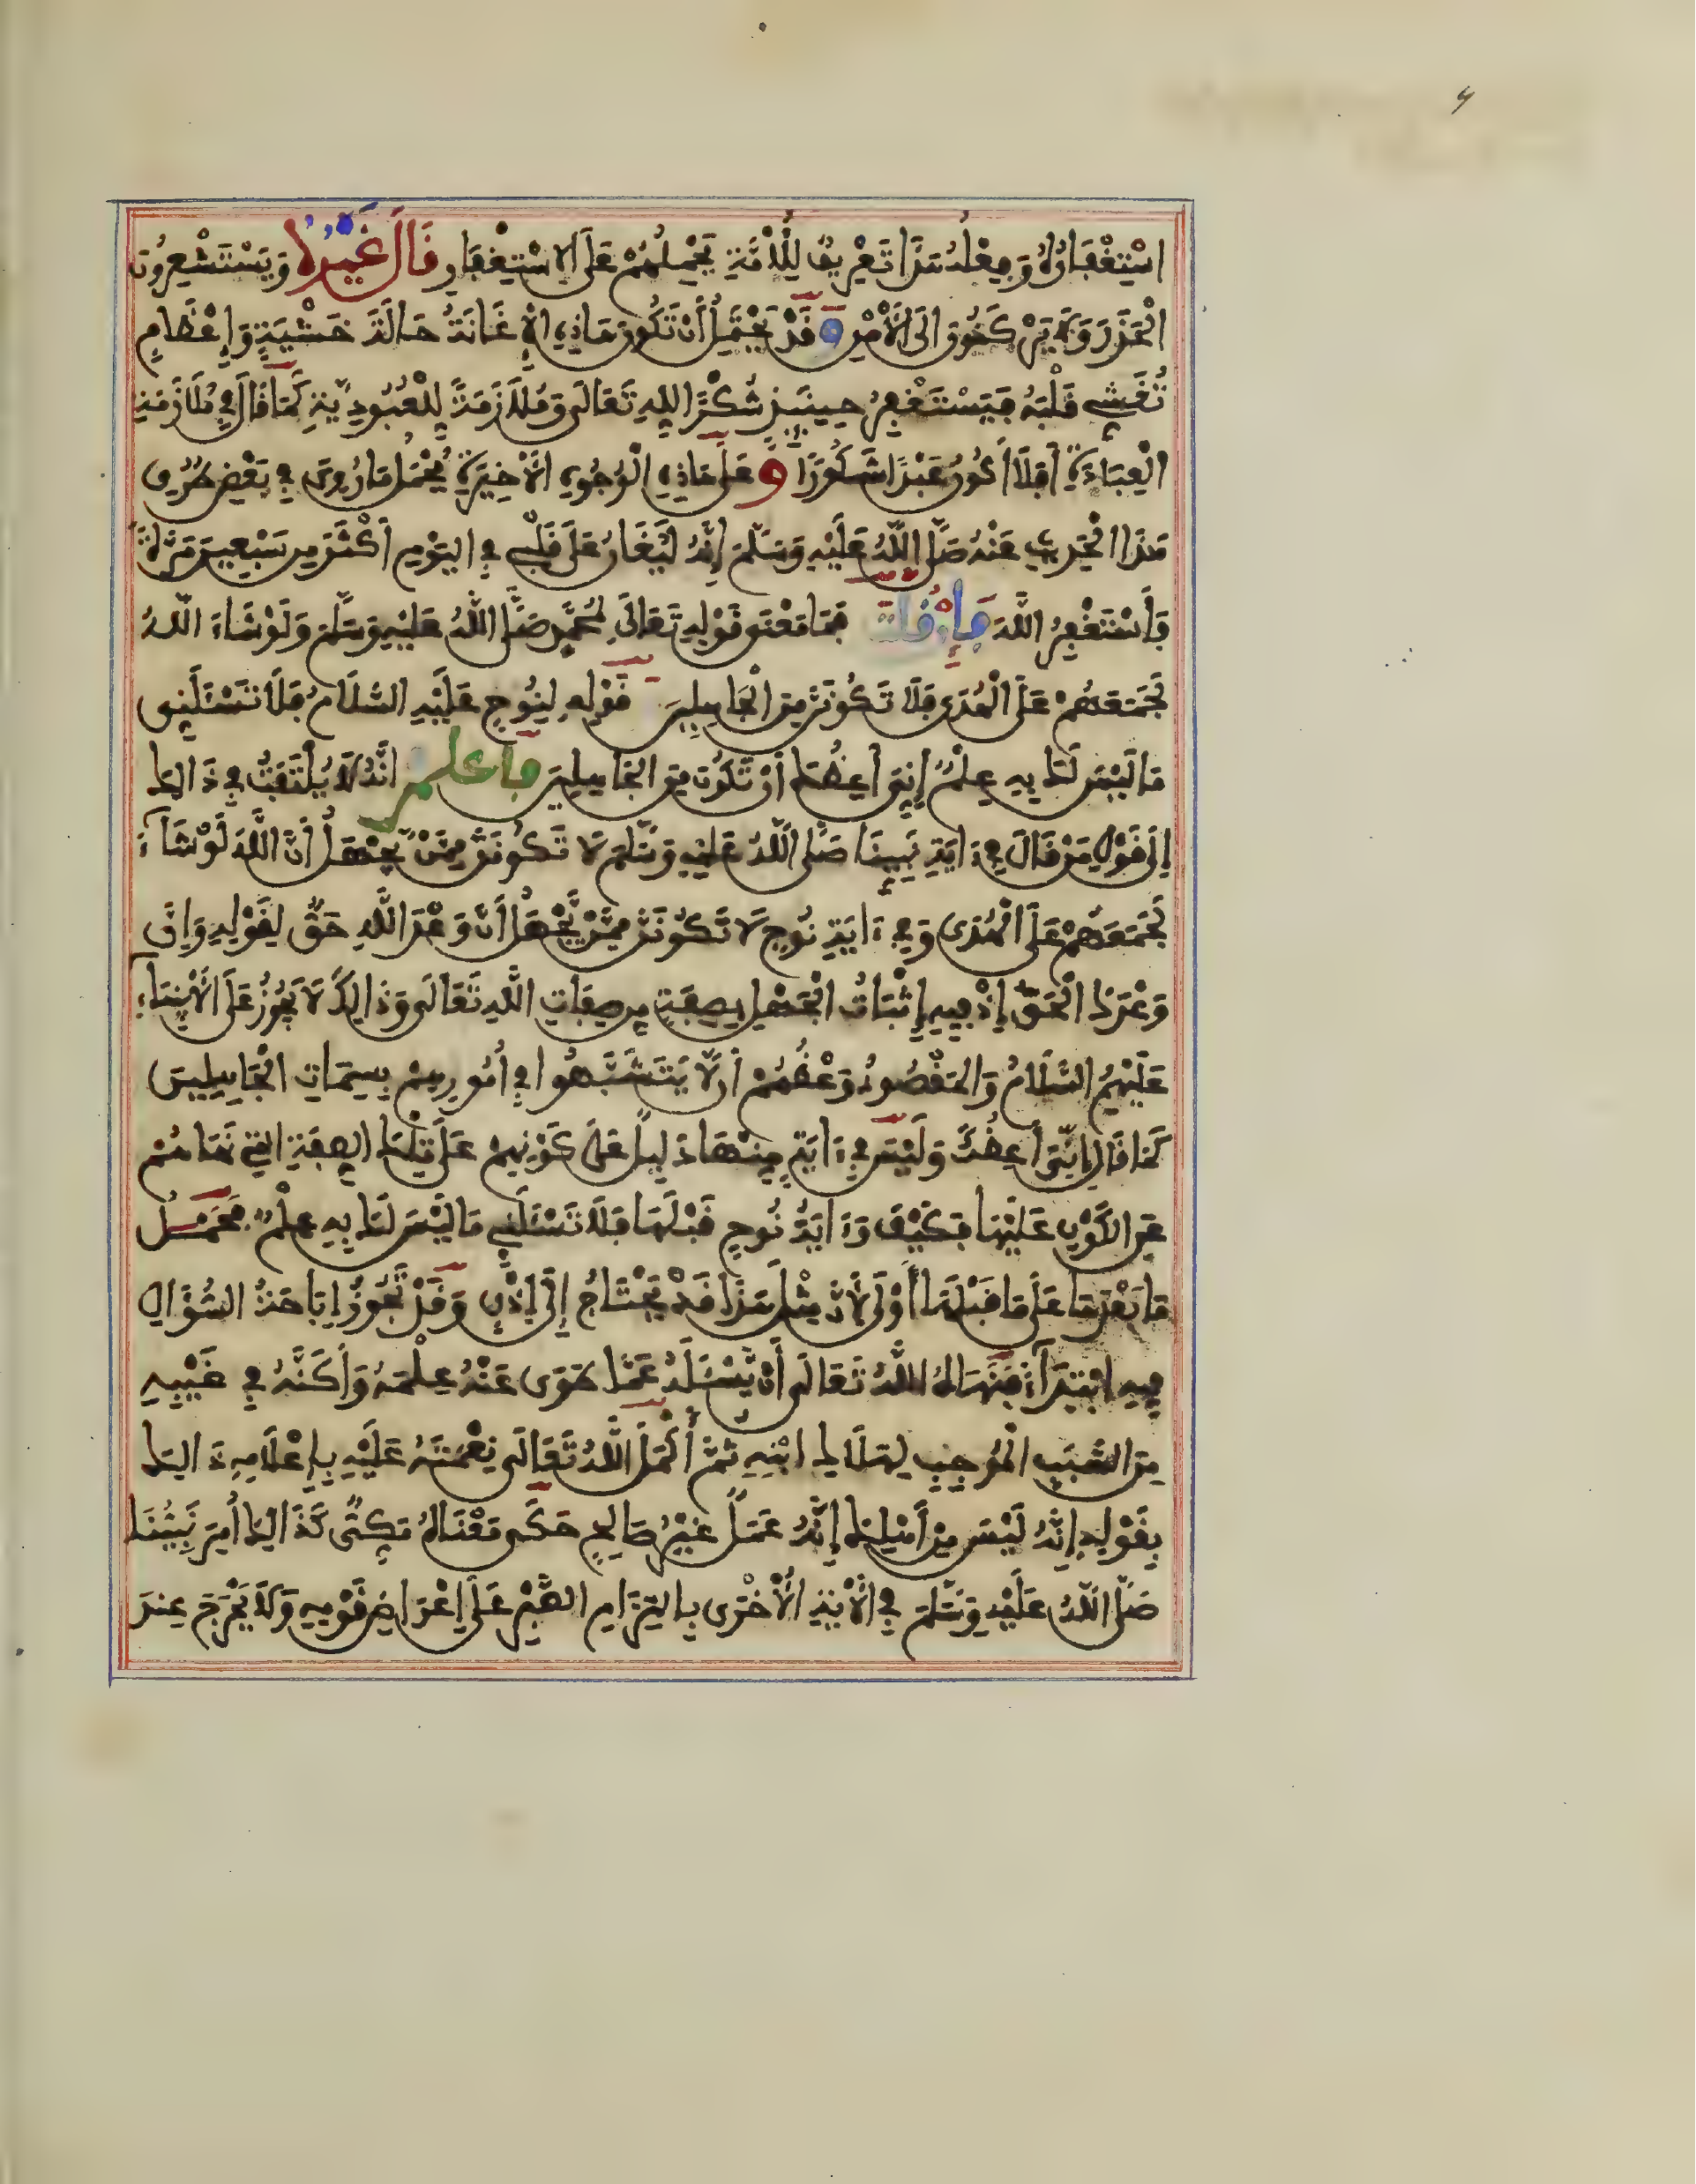 اسْتِغْفَارُهُ وَفِعْلُهُ هَذَا تَعْرِيفٌ لِلْأُمَّةِ يَحْمِلُهُمْ عَلَى الِاسْتِغْفَارِ قَالَ غَيْرُهُ وَيَسْتَشْعِرُونَ
الْحَذَرَ وَلَا يَرْكَنُونَ إِلَى الْأَمْنِ وَقَدْ يَحْتَمِلُ أَنْ تَكُونَ هَاذِهِ الْإِغَانَةُ حَالَةَ خَشْيَةٍ وَإِعْظَامٍ
تَغْشَى قَلْبَهُ فَيَسْتَغْفِرُ حِينَئِذٍ شُكْرًا لِلَّهِ تَعَالَى وَمُلَازَمَةً لِلْعُبُودِيَّةِ كَمَا قَالَ فِي مُلَازَمَةِ
الْعِبَادَةِ أَفَلَا أَكُونُ عَبْدًا شَكُورًا وَعَلَى هَاذِهِ الْوُجُوهِ الْأَخِيرَةِ يُحْمَلُ مَا رُوِيَ فِي بَعْضِ طُرُقِ
هَذَا الْحَدِيثِ عَنْهُ صَلَّى اللَّهُ عَلَيْهِ وَسَلَّمَ إِنَّهُ لَيُغَانُ عَلَى قَلْبِي فِي الْيَوْمِ أَكْثَرَ مِن سَبْعِينَ مَرَّةً
فَأَسْتَغْفِرُ اللَّهَ فَإِنْ قُلْتَ فَمَا مَعْنَى قَوْلِهِ تَعَالَى لِمُحَمَّدٍ صَلَّى اللَّهُ عَلَيْهِ وَسَلَّمَ وَلَوْ شَاءَ اللَّهُ
لَجَمَعَهُمْ عَلَى الْهُدَى فَلَا تَكُونَنَّ مِنَ الْجَاهِلِينَ قَوْلِهِ لِنُوحٍ عَلَيْهِ السَّلَامُ فَلَا تَسْئَلْنِي
مَا لَيْسَ لَكَ بِهِ عِلْمٌ إِنِّي أَعِظُكَ أَنْ تَكُونَ مِنَ الْجَاهِلِينَ فَاعْلَمْ أَنَّهُ لَا يُلْتَفَتُ فِي ذَالِكَ
إِلَى قَوْلِ مَنْ قَالَ فِي ءَايَةِ نَبِيِّنَا صَلَّى اللَّهُ عَلَيْهِ وَسَلَّمَ لَا تَكُونَنَّ مِمَّنْ يَجْهَلُ أَنَّ اللَّهَ لَوْ شَاءَ
لَجَمَعَهُمْ عَلَى الْهُدَى وَفِي ءَايَةِ نُوحٍ لَا تَكُونَنَّ مِمَّنْ يَجْهَلُ أَنَّ وَعْدَ اللَّهِ حَقٌّ لِقَوْلِهِ وَإِنَّ
وَعْدَكَ الْحَقُّ إِذْ فِيهِ إِثْبَاتُ الْجَهْلِ بِصِفَةٍ مِن صِفَاتِ اللَّهِ تَعَالَى وَذَالِكَ لَا يَجُوزُ عَلَى الْأَنْبِيَاءِ
عَلَيْهِمُ السَّلَامُ وَالْمَقْصُودُ وَعْظُهُمْ أَلَّا يَتَشَبَّهُوا فِي أُمُورِهِمْ بِسِمَاتِ الْجَاهِلِينَ
كَمَا قَالَ إِنِّي أَعِظُكَ وَلَيْسَ فِي ءَايَةٍ مِنْهَا دَلِيلٌ عَلَى كَوْنِهِمْ عَلَى تِلْكَ الصِّفَةِ الَّتِي نَهَاهُمْ
عَنِ الْكَوْنِ عَلَيْهَا فَكَيْفَ وَءَايَةُ نُوحٍ قَبْلَهَا فَلَا تَسْئَلْنِي مَا لَيْسَ لَكَ بِهِ عِلْمٌ فَحَمْلُ
مَا بَعْدَهَا عَلَى مَا قَبْلَهَا أَوْلَى لِأَنَّ مِثْلَ هَذَا قَدْ يَحْتَاجُ إِلَى إِذْنٍ وَقَدْ تَجُوزُ إِبَاحَةُ السُّؤَالِ
فِيهِ ابْتِدَاءً فَنَهَاهُ اللَّهُ تَعَالَى أَنْ يَسْئَلَهُ عَمَّا طَوَى عَنْهُ عِلْمَهُ وَأَكَنَّهُ فِي غَيْبِهِ
مِنَ السَّبَبِ الْمُوجِبِ لِهَلَاكِ ابْنِهِ ثُمَّ أَكْمَلَ اللَّهُ تَعَالَى نِعْمَتَهُ عَلَيْهِ بِإِعْلَامِهِ ذَالِكَ
بِقَوْلِهِ إِنَّهُ لَيْسَ مِنْ أَهْلِكَ إِنَّهُ عَمَلٌ غَيْرُ صَالِحٍ حَكَى مَعْنَاهُ مَكِّيٌّ كَذَالِكَ أُمِرَ نَبِيُّنَا
صَلَّى اللَّهُ عَلَيْهِ وَسَلَّمَ فِي الْآيَةِ الْأُخْرَى بِالْتِزَامِ الصَّبْرِ عَلَى إِعْرَاضِ قَوْمِهِ وَلَا يَحْرَجْ عِنْدَ